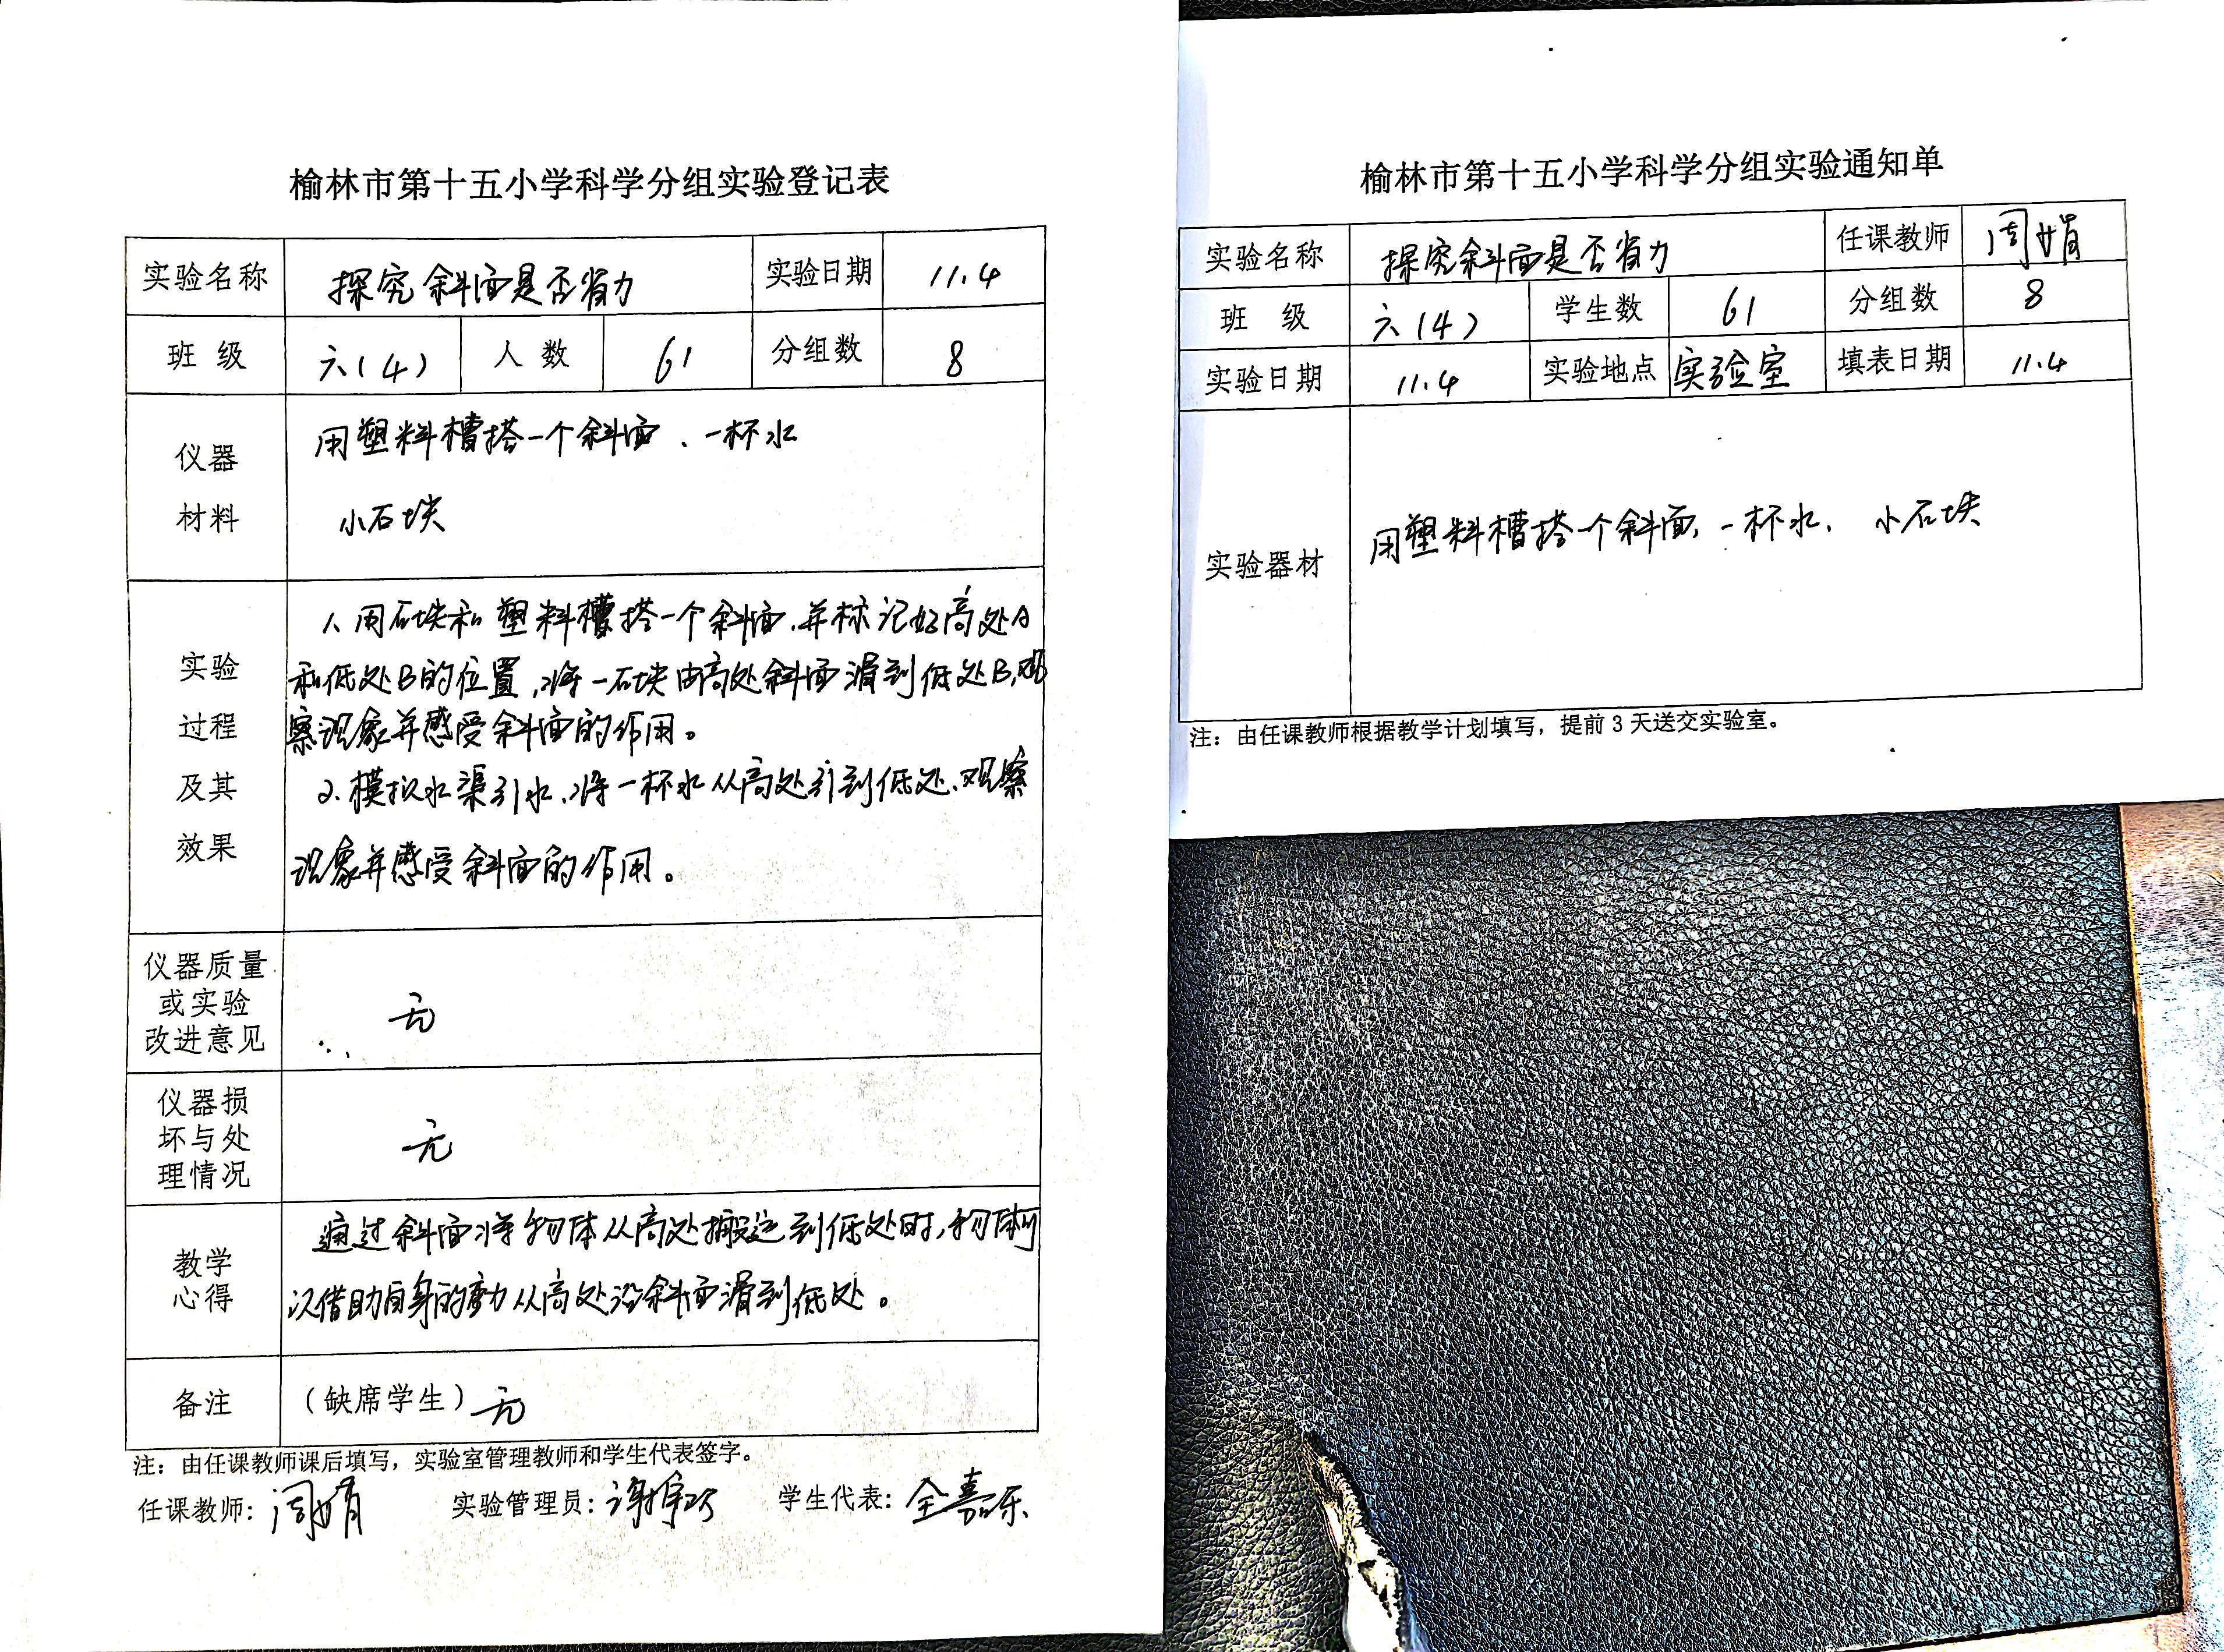 榆林市第十五小学科学分组实验登记表
实验名称 探究斜面是否省力 实验日期 11.4
班级 六(4) 人数 61 分组数 8
仪器材料
用塑料槽搭一个斜面、一杯水
小石块
实验过程及其效果
1、用石块和塑料槽搭一个斜面,并标记好高处A
和低处B的位置,将一石块由高处斜面滑到低处B,观
察现象并感受斜面的作用。
2、模拟水渠引水,将一杯水从高处引到低处、观察
现象并感受斜面的作用。
仪器质量或实验改进意见 无
仪器损坏与处理情况 无
教学心得
通过斜面将物体从高处搬运到低处时,物体可
以借助自身的重力从高处沿斜面滑到低处。
备注 (缺席学生) 无
注:由任课教师课后填写,实验室管理教师和学生代表签字。
任课教师: 周娟 实验管理员: 学生代表: 全嘉乐
榆林市第十五小学科学分组实验通知单
实验名称 探究斜面是否省力 任课教师 周娟
班 级 六(4) 学生数 61 分组数 8
实验日期 11.4 实验地点 实验室 填表日期 11.4
实验器材 用塑料槽搭一个斜面,一杯水, 小石块
注:由任课教师根据教学计划填写,提前3天送交实验室。